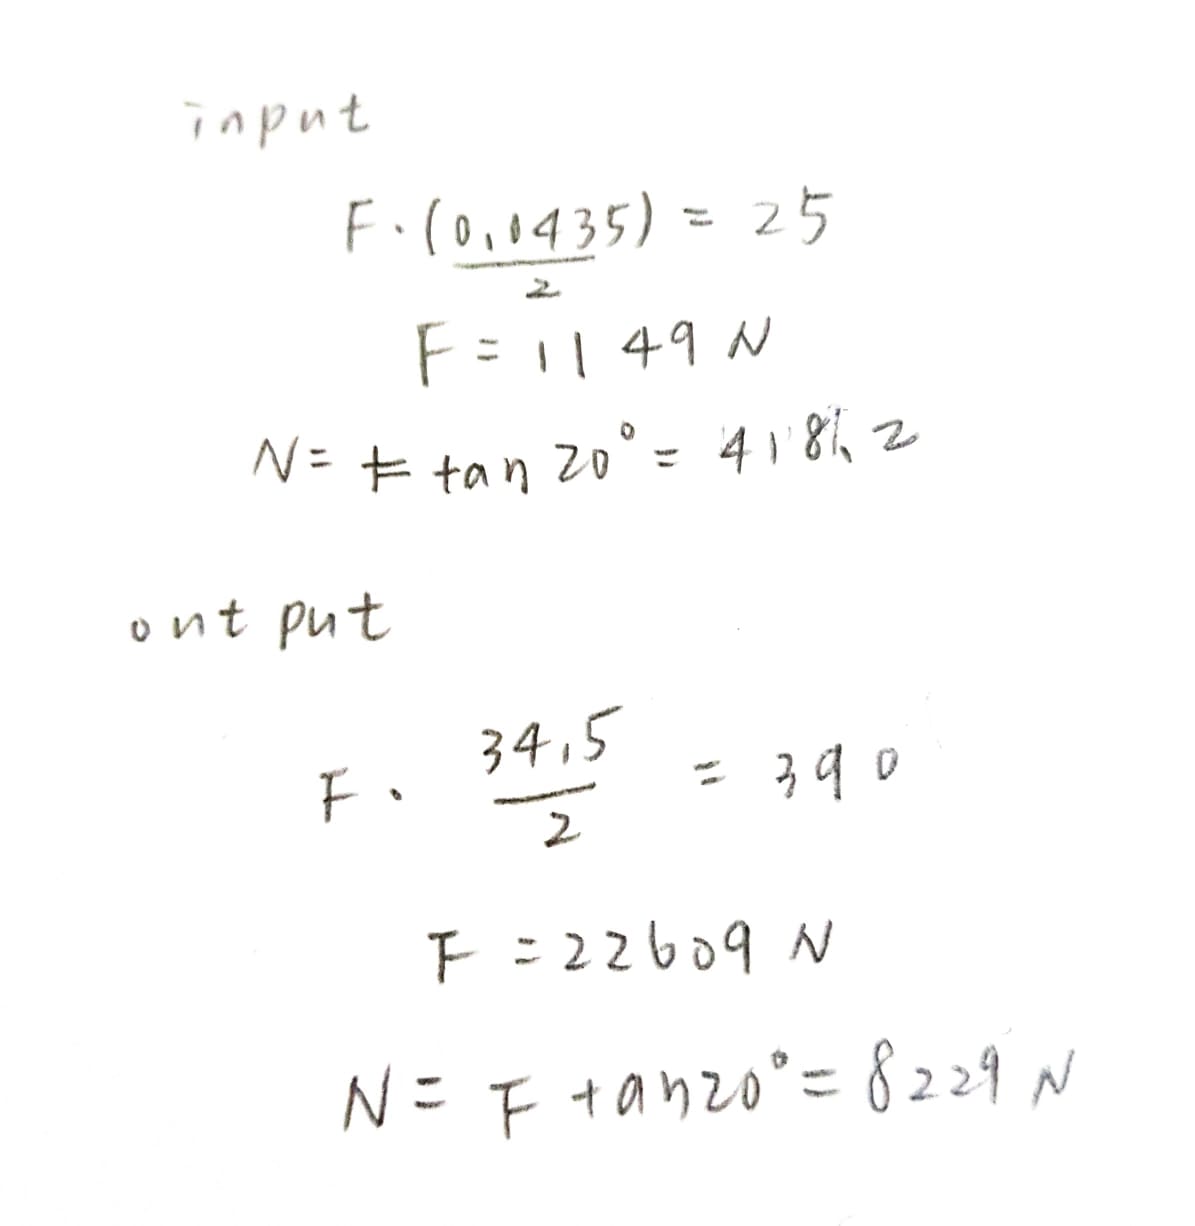 input
F·(0.0435)/2 = 25
F = 1149 N
N = F tan 20° = 418.2
output
F· 34.5/2 = 390
F = 22609 N
N = F tan20° = 8229 N